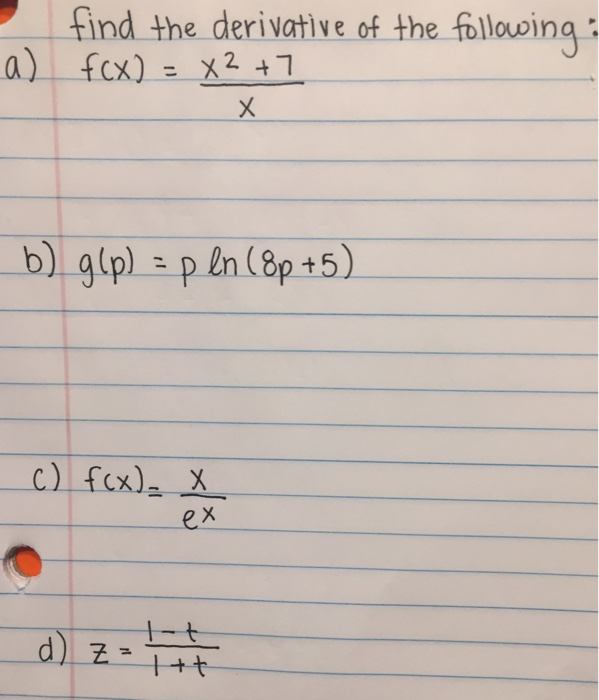 find the derivative of the following:
a) f(x) = x2 +7
x
b) g(p) = p ln(8p+5)
c) f(x) = x
ex
d) z = 1-t
1+t